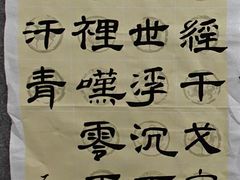 經干戈
世浮沉
裡嘆零
汗青